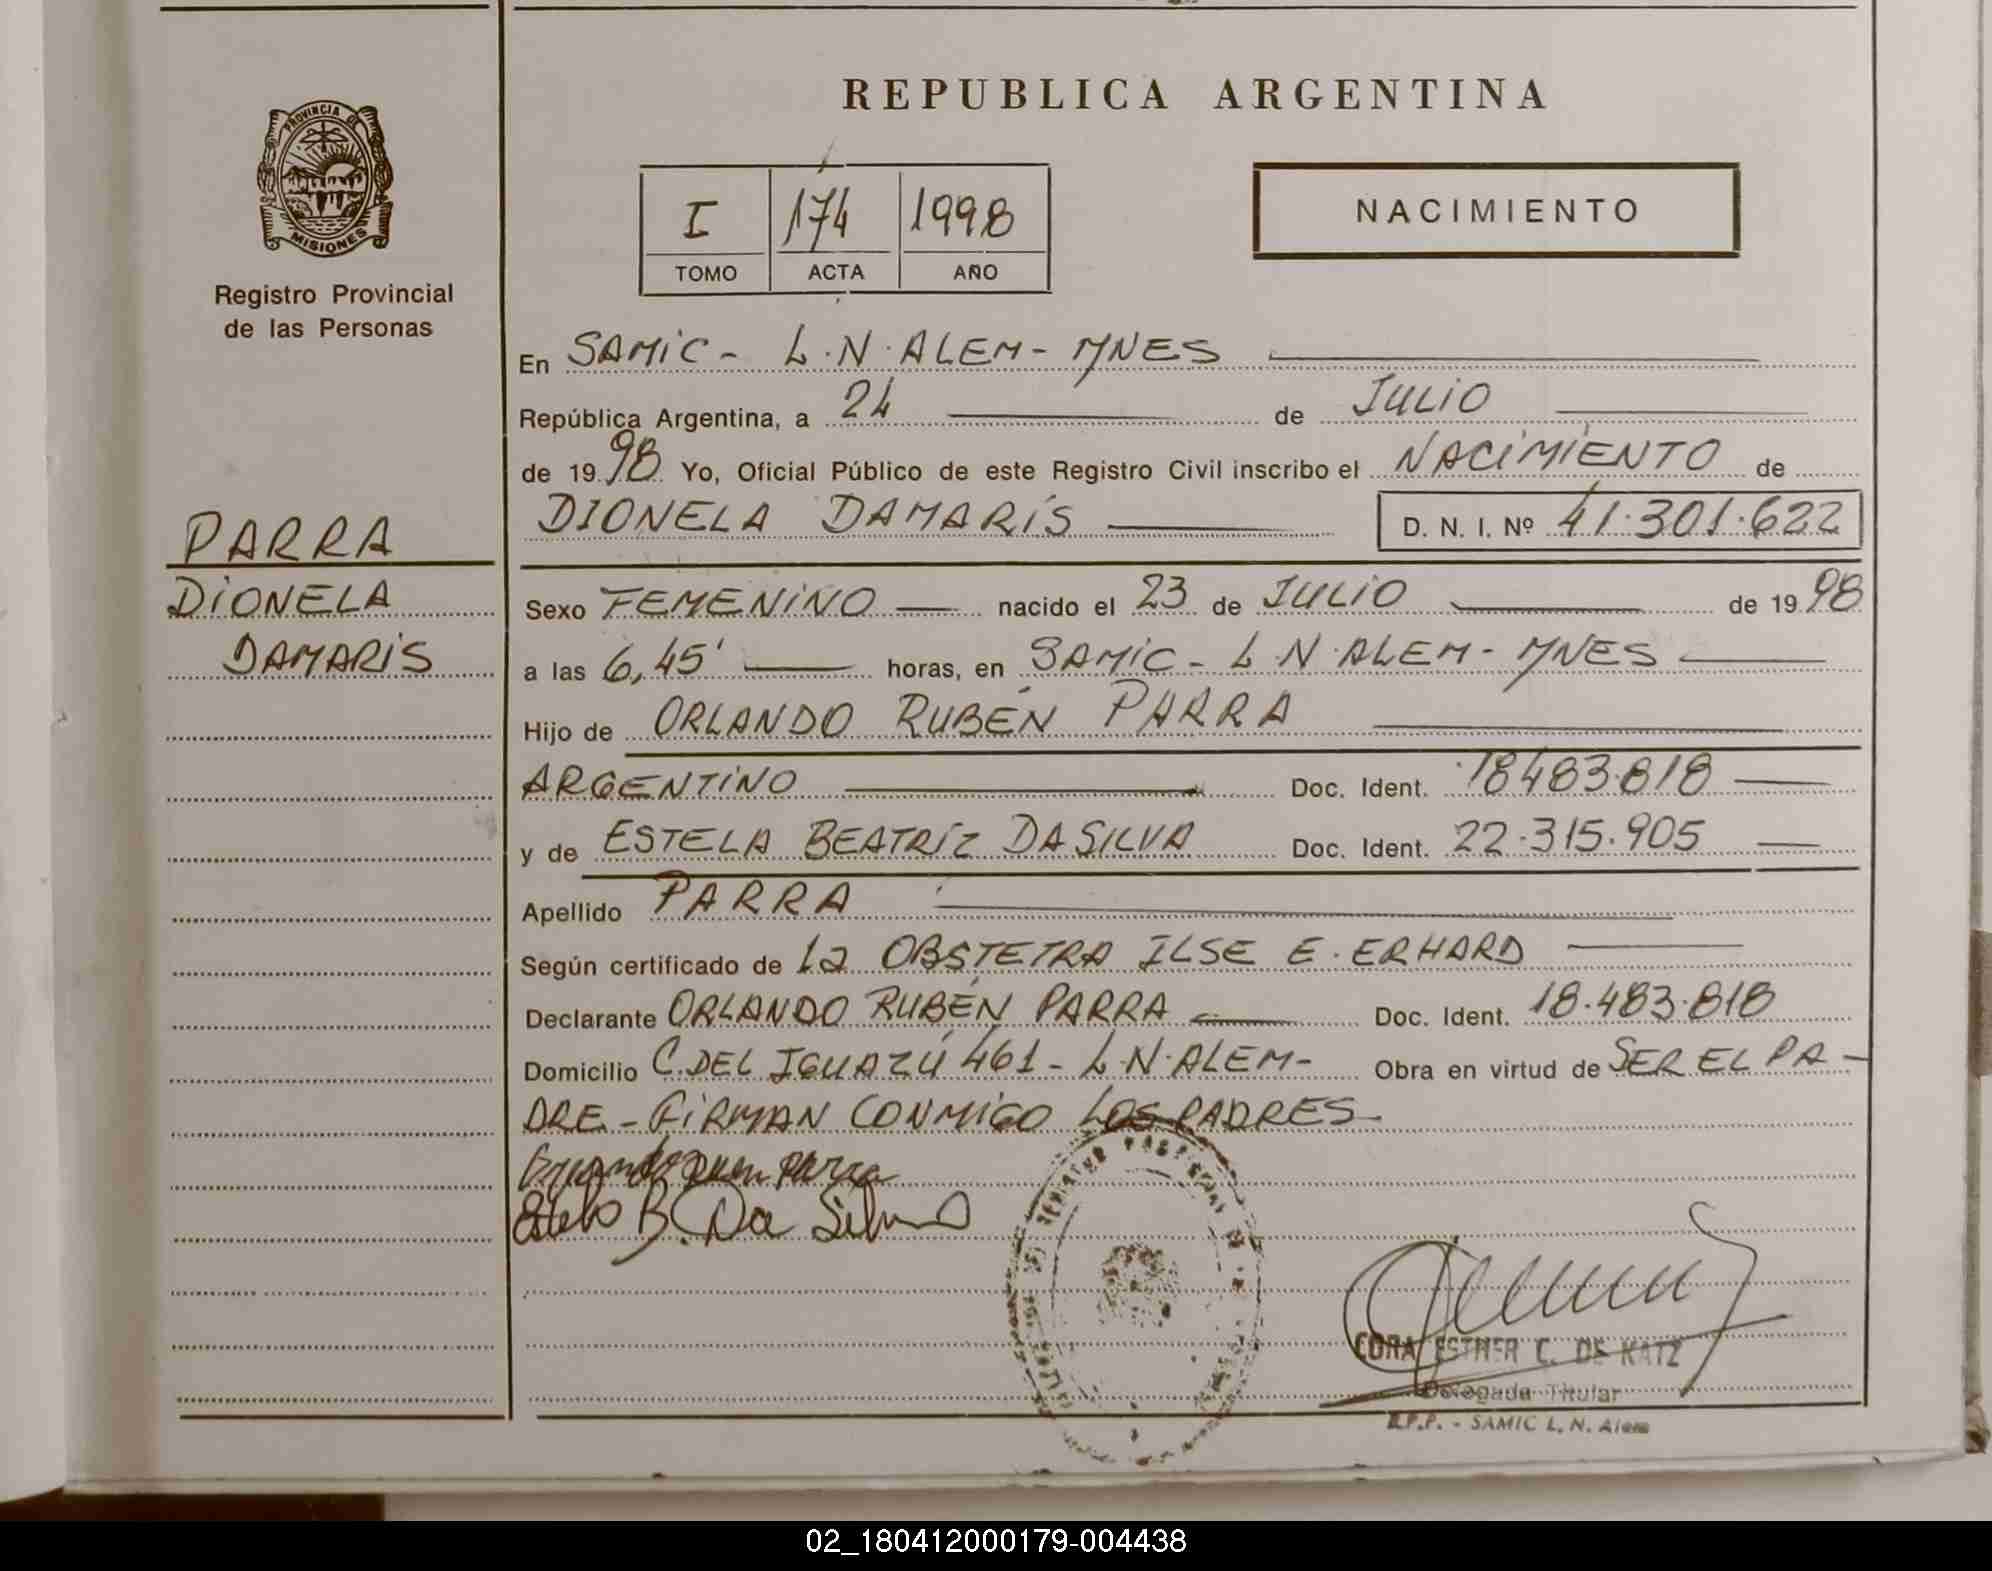 PROVINCIA DE
MISIONES
Registro Provincial
de las Personas
PARRA
DIONELA
DAMARIS
REPUBLICA ARGENTINA
I 174 1998
TOMO ACTA AÑO
NACIMIENTO
En SAMIC - L.N.ALEM - MNES
República Argentina, a 24 de JULIO
de 1998 Yo, Oficial Público de este Registro Civil inscribo el NACIMIENTO de
DIONELA DAMARÍS D. N. I. Nº 41.301.622
Sexo FEMENINO nacido el 23 de JULIO de 1998
a las 6,45' horas, en SAMIC - L.N.ALEM - MNES
Hijo de ORLANDO RUBÉN PARRA
ARGENTINO Doc. Ident. 18483.818
y de ESTELA BEATRÍZ DA SILVA Doc. Ident. 22.315.905
Apellido PARRA
Según certificado de la OBSTETRA ILSE E. ERHARD
Declarante ORLANDO RUBÉN PARRA Doc. Ident. 18.483.818
Domicilio C. DEL IGUAZÚ 461 - L.N.ALEM - Obra en virtud de SER EL PA-
DRE - FIRMAN CONMIGO LOS PADRES -
Parra
Estela B. Da Silva
CORA ESTHER C. DE KATZ
Delegada Titular
R.P.P. - SAMIC L. N. Alem
02_180412000179-004438